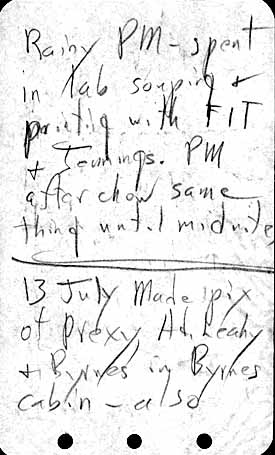 Rainy PM - spent
in lab souping +
printing with FIT
+ Jennings. PM
after chow same
thing until midnite
13 July Made pix
of Prexy Ad. Leahy
+ Byrnes in Byrnes
cabin - also